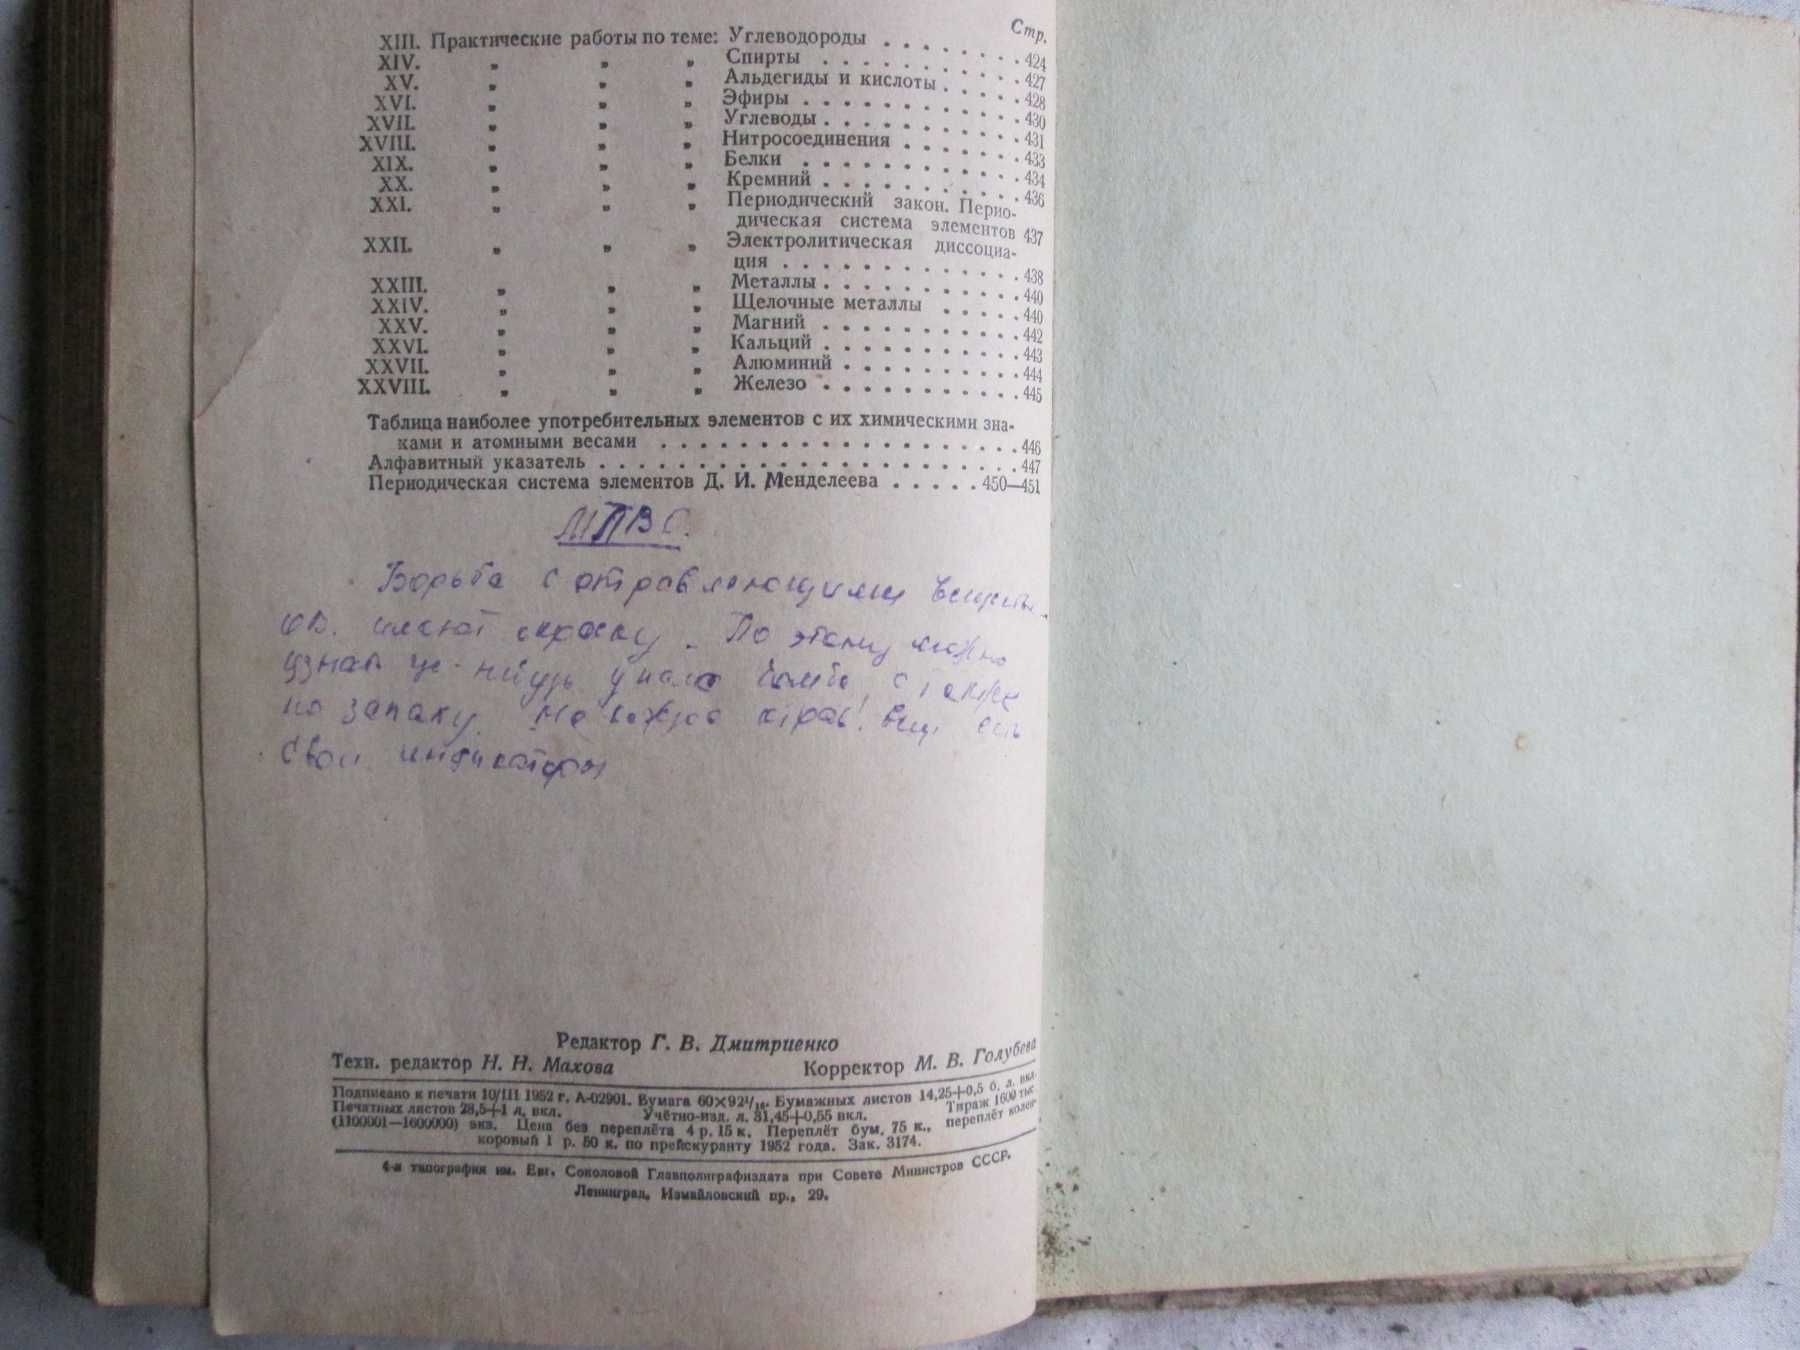 Стр.
XIII. Практические работы по теме: Углеводороды . . . . . . . 424
XIV. „ „ „ Спирты . . . . . . . . . . 427
XV. „ „ „ Альдегиды и кислоты . . . . 428
XVI. „ „ „ Эфиры . . . . . . . . . . . 430
XVII. „ „ „ Углеводы . . . . . . . . . . 431
XVIII. „ „ „ Нитросоединения . . . . . . 433
XIX. „ „ „ Белки . . . . . . . . . . . 434
XX. „ „ „ Кремний . . . . . . . . . . 436
XXI. „ „ „ Периодический закон. Перио-
дическая система элементов 437
XXII. „ „ „ Электролитическая диссоциа-
ция . . . . . . . . . . . . 438
XXIII. „ „ „ Металлы . . . . . . . . . . 440
XXIV. „ „ „ Щелочные металлы . . . . 440
XXV. „ „ „ Магний . . . . . . . . . . 442
XXVI. „ „ „ Кальций . . . . . . . . . . 443
XXVII. „ „ „ Алюминий . . . . . . . . . 444
XXVIII. „ „ „ Железо . . . . . . . . . . 445
Таблица наиболее употребительных элементов с их химическими зна-
ками и атомными весами . . . . . . . . . . . . . . . . . . 446
Алфавитный указатель . . . . . . . . . . . . . . . . . . . . . 447
Периодическая система элементов Д. И. Менделеева . . . . . 450—451
МПВО.
Борьба с отравляющими
ОВ. имеют окраску. По этому можно
узнать упала бомба, а также
по запаху. На отрав. вещ. есть
свои индикаторы
Редактор Г. В. Дмитриенко
Техн. редактор Н. Н. Махова Корректор М. В. Голубева
Подписано к печати 10/III 1952 г. А-02901. Бумага 60×92 1/16. Бумажных листов 14,25+0,5 б. л. вкл.
Печатных листов 28,5+1 л. вкл. Учётно-изд. л. 31,45+0,55 вкл. Тираж 1600 тыс.
(1100001—1600000) экз. Цена без переплёта 4 р. 15 к. Переплёт бум. 75 к., переплёт колен-
коровый 1 р. 50 к. по прейскуранту 1952 года. Зак. 3174.
4-я типография им. Евг. Соколовой Главполиграфиздата при Совете Министров СССР.
Ленинград, Измайловский пр., 29.